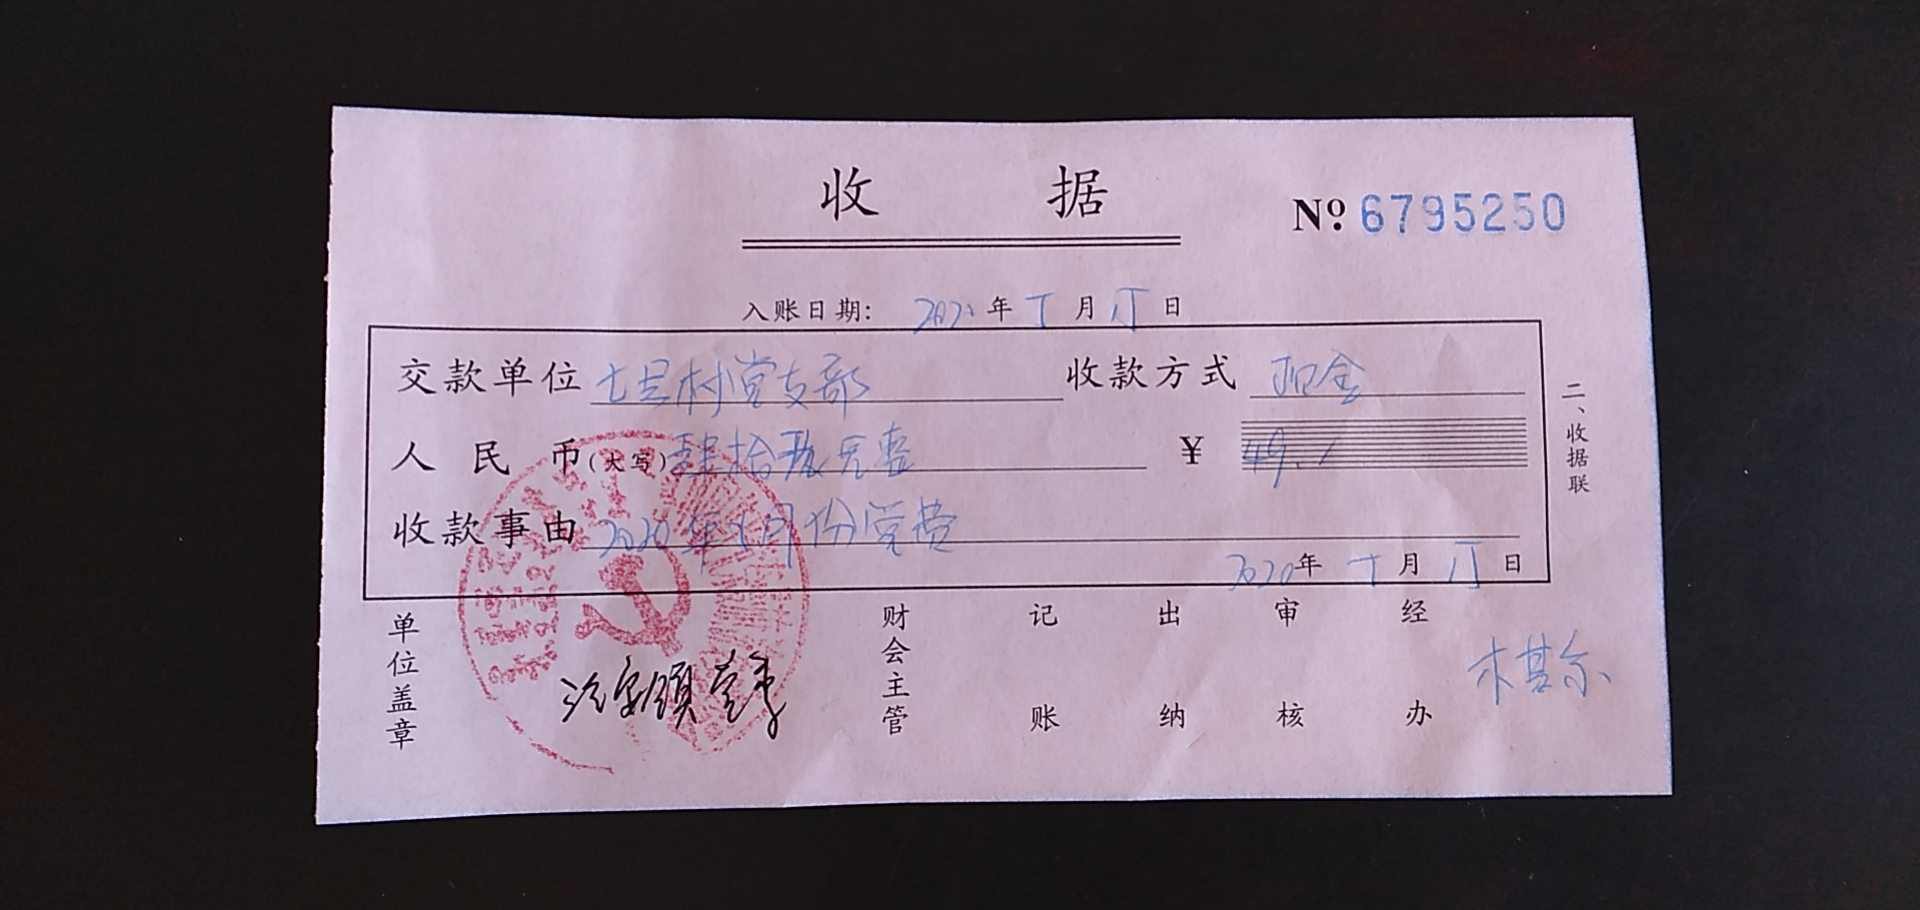 收 据
№ 6795250
入账日期: 2020年 5月 15日
交款单位 七里村党支部 收款方式 现金
人民币(大写) 肆拾玖元壹 ¥ 49.1
收款事由 2020年5月份党费
2020年 5月 15日
二、收据联
单位盖章 财会主管 记账 出纳 审核 经办